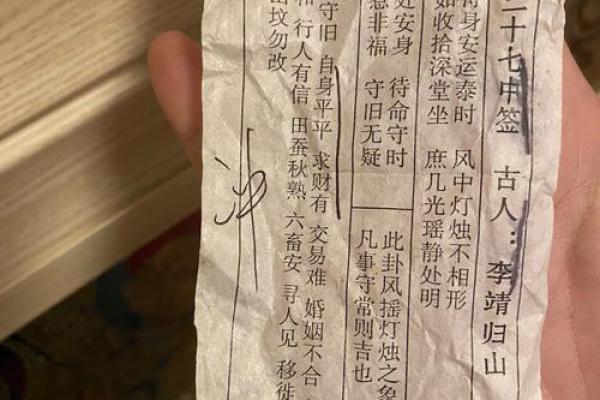 二十七中签 古人：李靖归山
身安运泰时 风中灯烛不相形
如收拾深堂坐 庶几光瑶静处明
处安身 待命守时
惹非福 守旧无疑
此卦风摇灯烛之象
凡事守常则吉也
守旧 自身平平 求财有 交易难 婚姻不合
和 行人有信 田蚕秋熟 六畜安 寻人见 移徙
坟勿改